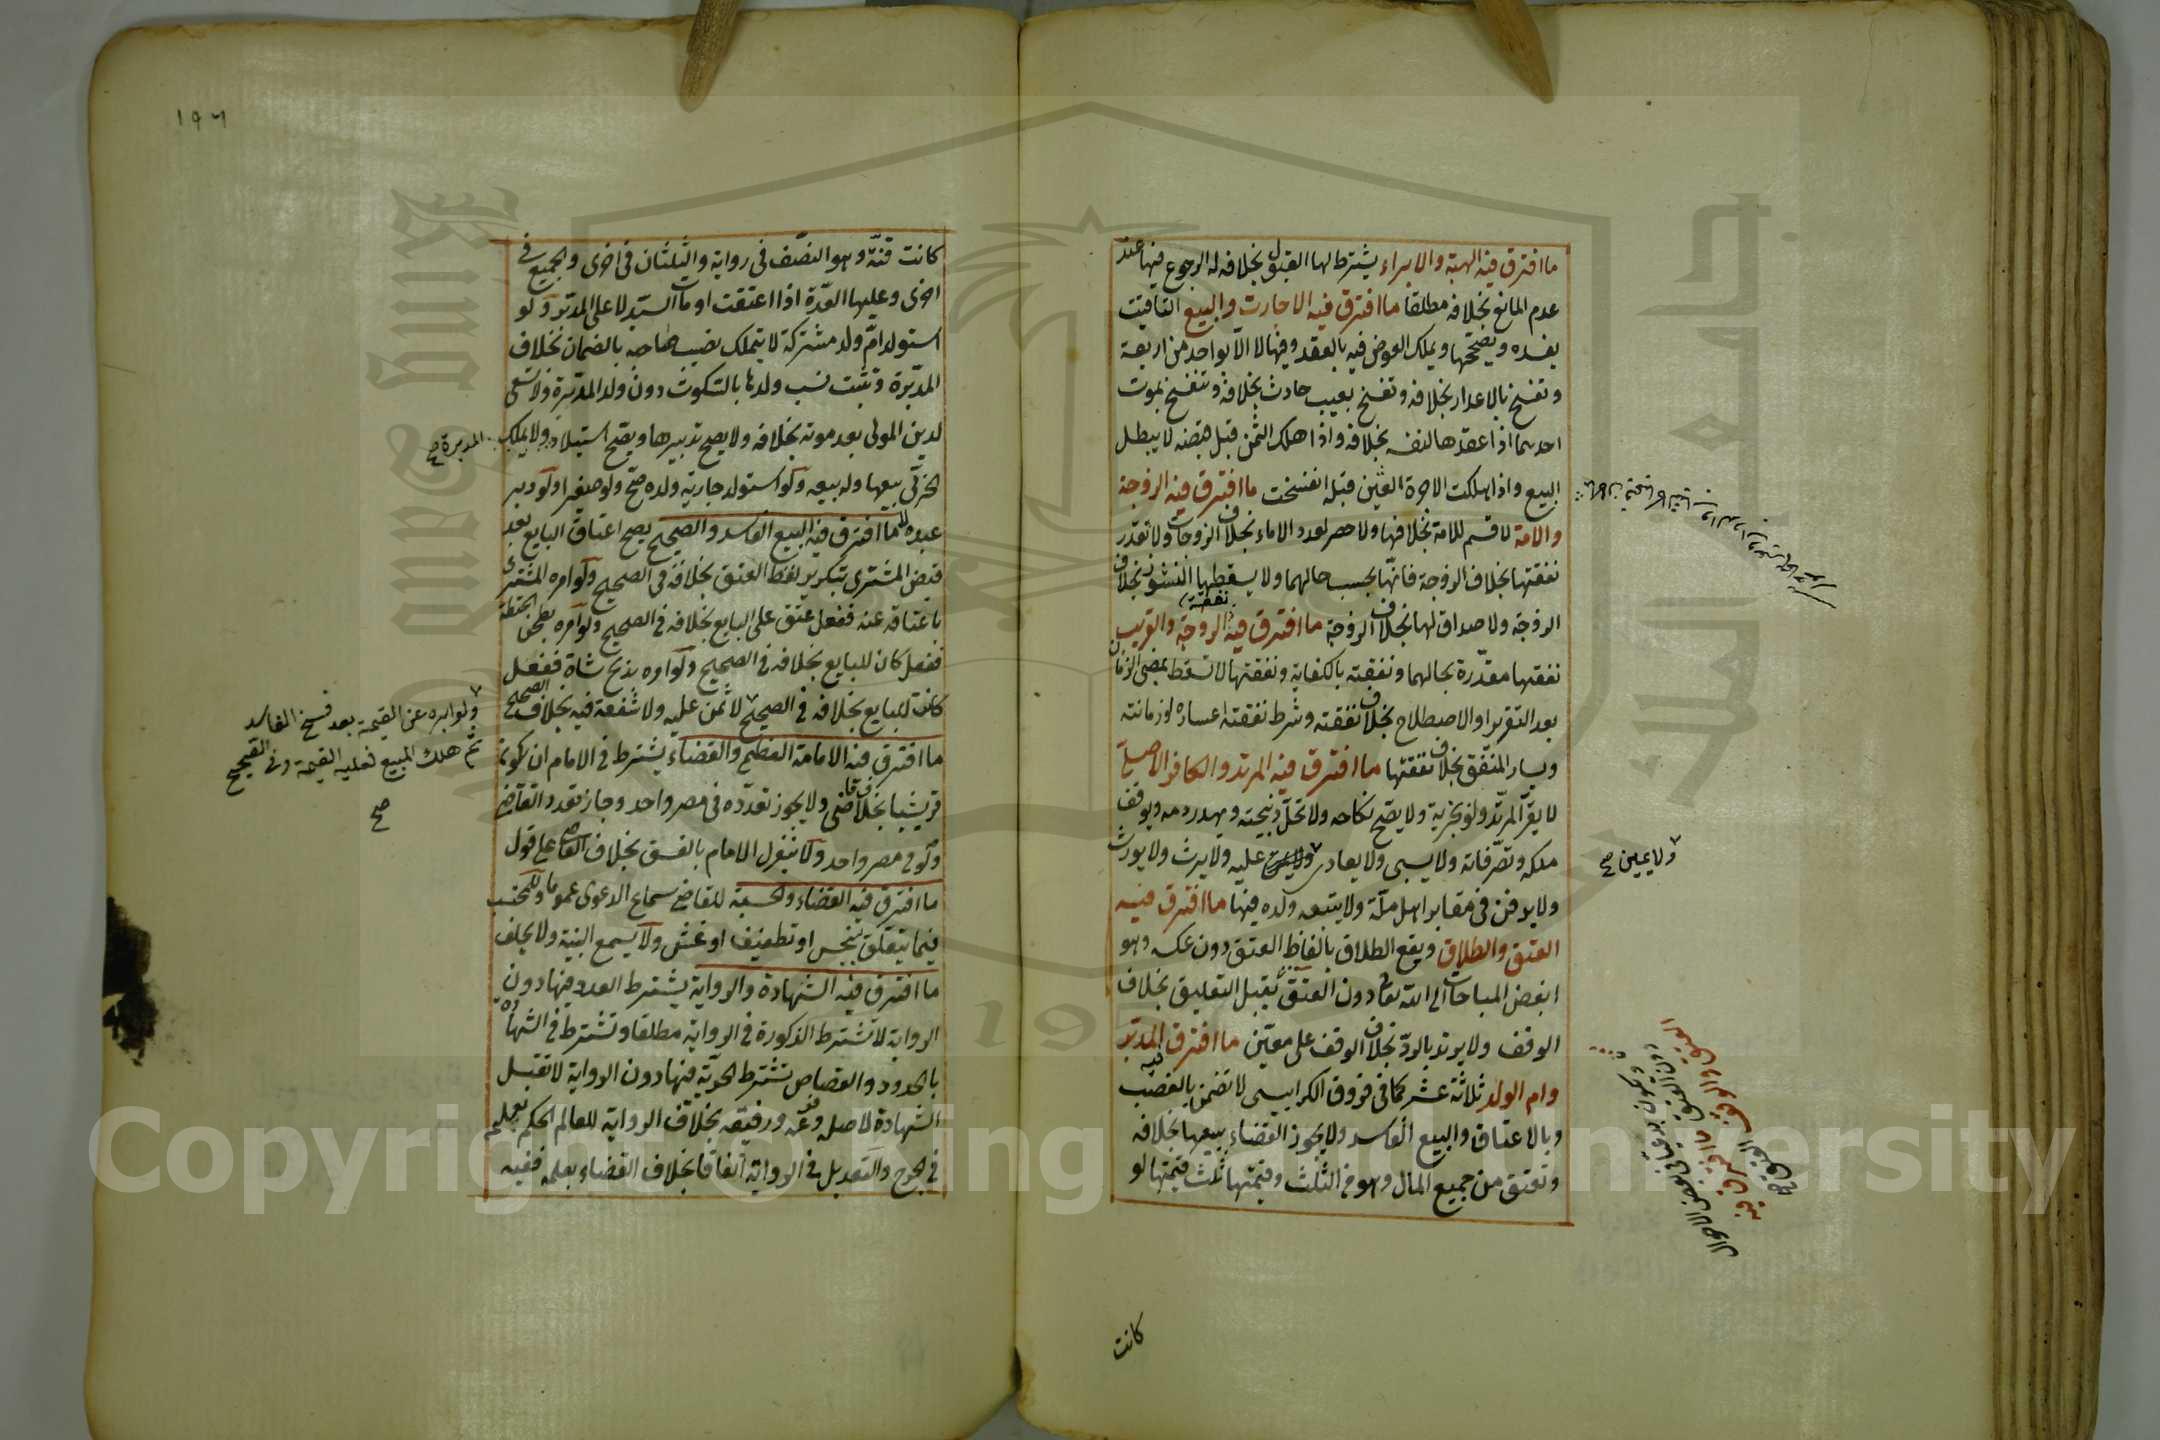 ما افترق فيه الهبة والابراء يشترط لها القبول بخلافه له الرجوع فيها عند
عدم المانع بخلافه مطلقا ما افترق فيه الاجارت والبيع التاقيت
يفسده ويصححها ويملك العوض فيه بالعقد وفيها لا الا بواحد من اربعة
وتفسخ بالاعذار بخلافه وتفسخ بعيب حادث بخلافه وتنفسخ بموت
احدهما اذا عقدها لنفسه بخلافه واذا هلك الثمن قبل قبضه لا يبطل
البيع واذا هلكت الاجرة العين قبله انفسخت ما افترق فيه الزوجة
والامة لا قسم للامة بخلافها ولا حصر لعدد الاماء بخلاف الزوجات ولا تقدر
نفقتها بخلاف الزوجة فانها بحسب حالهما ولا يسقطها النشوز بخلاف
الزوجة ولا صداق لها بخلاف الزوجة ما افترق فيه نفقة الزوجة والقريب
نفقتها مقدرة بحالهما ونفقته بالكفاية ونفقتها لا تسقط بمضى الزمان
بعد التقرير او الاصطلاح بخلاف نفقته وشرط نفقته اعساره وزمانته
ويسار المنفق بخلاف نفقتها ما افترق فيه المرتد والكافر الاصلي
لا يقر المرتد ولو بجزية ولا يصح نكاحه ولا تحل ذبيحته ويهدر دمه ويوقف
ملكه وتصرفاته ولا يسبى ولا يفادى عليه ولا يرث ولا يورث
ولا يدفن في مقابر اهل ملة ولا يتبعه ولده فيها ما افترق فيه
العتق والطلاق ويقع الطلاق بالفاظ العتق دون عكسه وهو
ابغض المباحات الى الله تعالى دون العتق يقبل التعليق بخلاف
الوقف ولا يرتد بالرد بخلاف الوقف على معين ما افترق فيه المدبر
وام الولد ثلاثة عشر كما في فروق الكرابيسي لا تضمن بالغصب
وبالاعتاق والبيع الفاسد ولا يجوز القضاء ببيعها بخلافه
وتعتق من جميع المال وهو من الثلث وقيمتها ثلث قيمتها لو
كانت
ولا يمين صح
العتق والوقف العتق صح
ما افترق فيه
ويكون بدعيا في بعض الاحوال
دون العتق
١٩٦
كانت قنة وهو النصف في رواية والثلثان في اخرى والجميع في
اخرى وعليها العدة اذا اعتقت او مات السيد لا على المدبر ولو
استولد ام ولد مشتركة لا يتملك نصيب صاحبه بالضمان بخلاف
المدبرة وتثبت نسب ولدها بالسكوت دون ولد المدبرة ولا تسعى
لدين المولى بعد موته بخلافه ولا يصح تدبيرها ويصح استيلاد ولا يملك
المدبرة صح
الحربي بيعها وله بيعه ولو استولد جارية ولده صح ولو صغيرا ولو دبر
عبده لا ما افترق فيه البيع الفاسد والصحيح يصح اعتاق البايع بعد
قبض المشترى بتكرير لفظ العتق بخلافه في الصحيح ولو امره المشترى
باعتاقه عنه ففعل عتق على البايع بخلافه في الصحيح ولو امره بطحن الحنطة
ففعل كان للبايع بخلافه في الصحيح ولو امره بذبح شاة ففعل
كانت للبايع بخلافه في الصحيح لا ثمن عليه ولا شفعة فيه بخلاف الصحيح
ولو ابره عن القيمة بعد فسخ الفاسد
ثم هلك المبيع فعليه القيمة وفي الصحيح
صح
ما افترق فيه الامامة العظمى والقضاء يشترط في الامام ان يكون
قريشيا بخلاف القاضى ولا يجوز تعدده في مصر واحد وجاز تعدد القاضي
ولو في مصر واحد ولا ينعزل الامام بالفسق بخلاف القاضي على قول
ما افترق فيه القضاء والحسبة للقاضي سماع الدعوى عموما وللمحتسب
فيما يتعلق ببخس او تطفيف او غش ولا يسمع البينة ولا يحلف
ما افترق فيه الشهادة والرواية يشترط العدد فيها دون
الرواية لا تشترط الذكورة في الرواية مطلقا وتشترط في الشهادة
بالحدود والقصاص تشترط الحرية فيها دون الرواية لا تقبل
الشهادة لاصله وفرعه ورفيقه بخلاف الرواية للعالم الحكم بعلمه
في الجرح والتعديل في الرواية اتفاقا بخلاف القضاء بعلمه ففيه
Copyright © King Saud University
1957